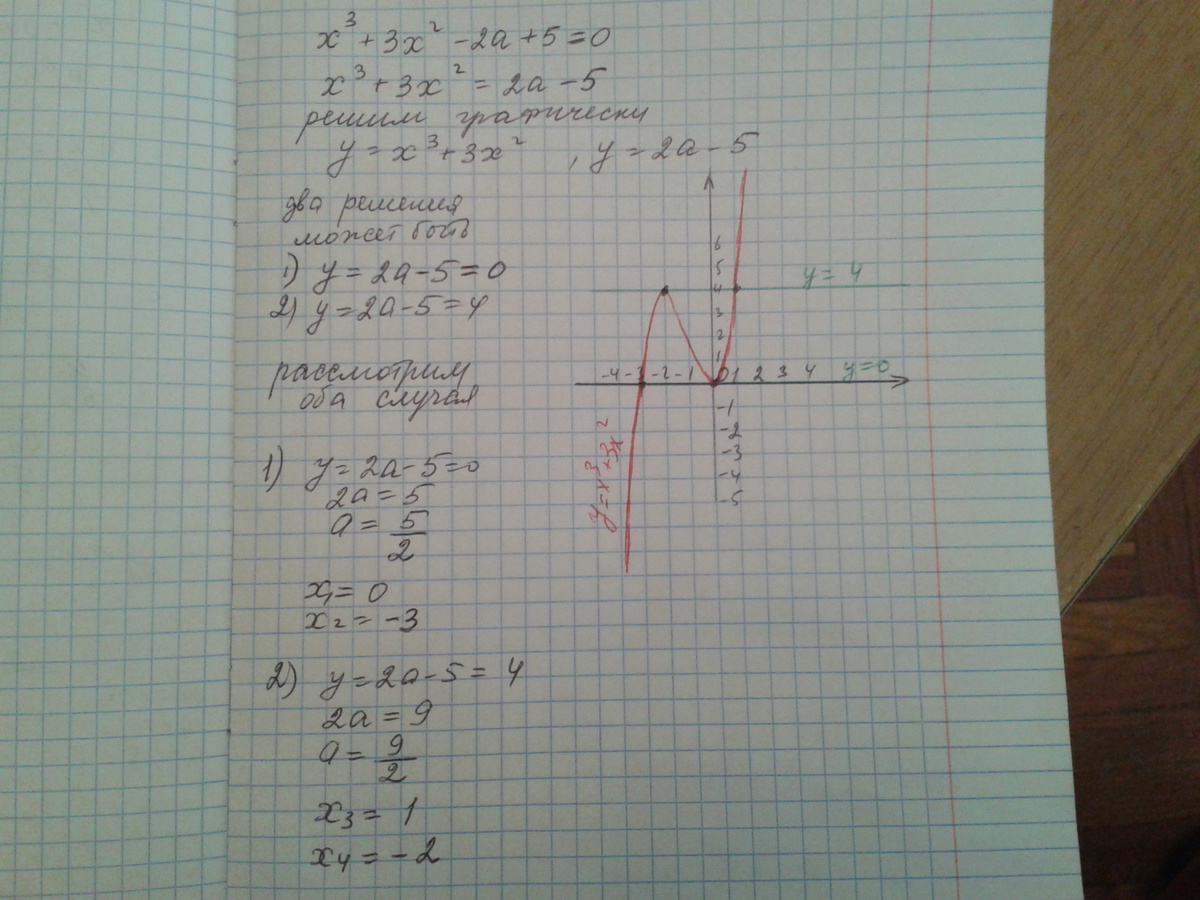 x³ + 3x² - 2a + 5 = 0
x³ + 3x² = 2a - 5
решим графически
y = x³ + 3x² , y = 2a - 5
два решения
может быть
1) y = 2a - 5 = 0
2) y = 2a - 5 = 4
рассмотрим
оба случая
1) y = 2a - 5 = 0
2a = 5
a = 5/2
x₁ = 0
x₂ = -3
2) y = 2a - 5 = 4
2a = 9
a = 9/2
x₃ = 1
x₄ = -2
6
5
4
3
2
1
y = 4
-4 -3 -2 -1 0 1 2 3 4 y = 0
-1
-2
-3
-4
-5
y = x³ + 3x²